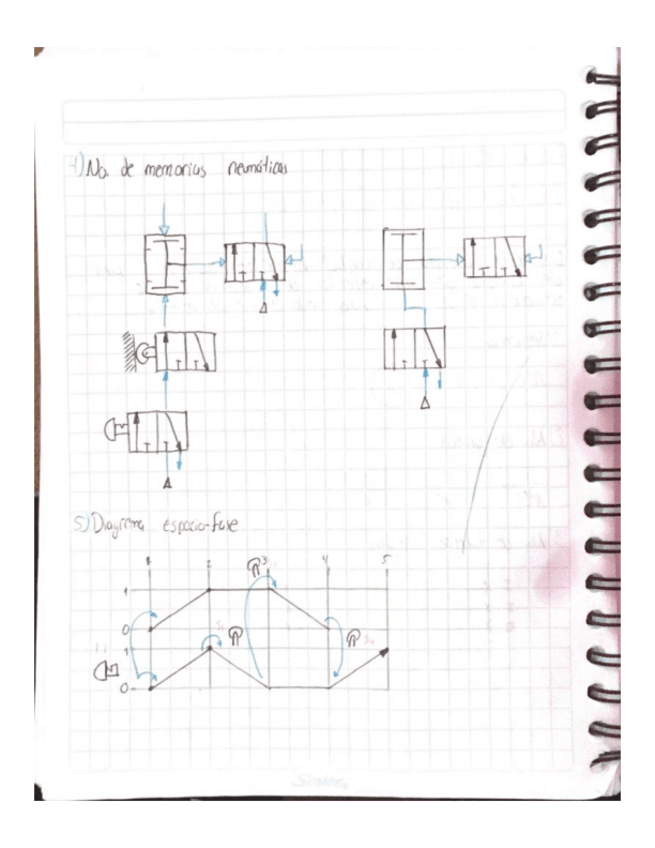 4) No. de memorias neumáticas
5) Diagrama espacio-fase
1 2 3 4 5
1
0
1
0